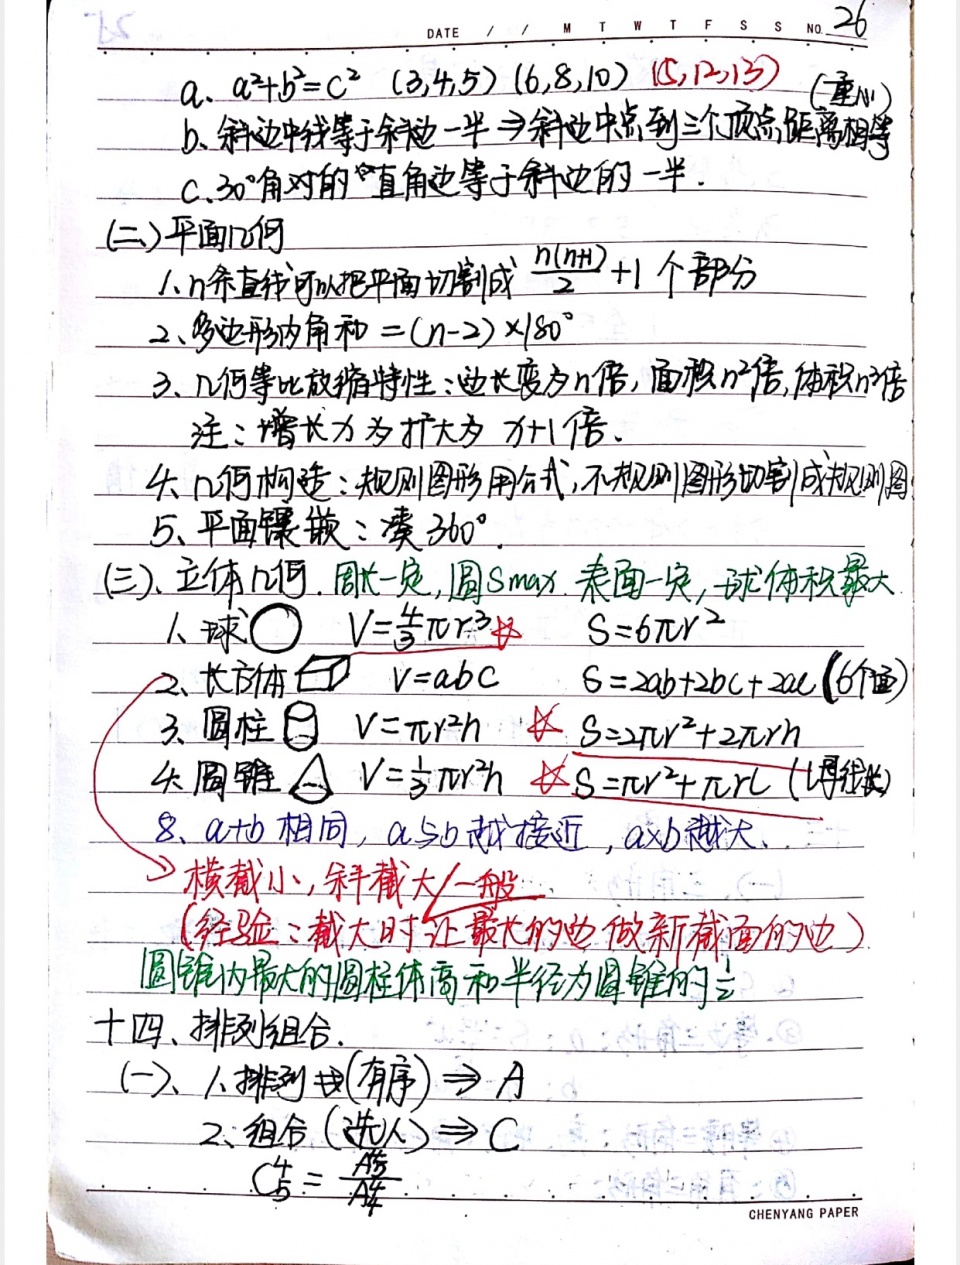 DATE / / M T W T F S S NO. 26
a、a²+b²=c² (3,4,5) (6,8,10) (5,12,13)
(重心)
b、斜边中线等于斜边一半⇒斜边中点到三个顶点距离相等
c、30°角对的直角边等于斜边的一半.
(二)平面几何
1、n条直线可以把平面切割成 n(n+1)/2 +1 个部分
2、多边形内角和=(n-2)×180°
3、几何等比放缩特性:边长变为n倍,面积n²倍,体积n³倍
注:增长x为扩大为 x+1倍.
4、几何构造:规则图形用公式,不规则图形切割成规则图
5、平面镶嵌:凑360°.
(三)、立体几何. 周长一定,圆Smax. 表面一定,球体积最大
1、球 V=4/3πr³ S=6πr²
2、长方体 V=abc S=2ab+2bc+2ac (6个面)
3、圆柱 V=πr²h S=2πr²+2πrh
4、圆锥 V=1/3πr²h S=πr²+πrL (L母线长)
8、a+b相同,a与b越接近,a×b越大、
横截小,斜截大/一般
(经验:截大时让最长的边做新截面的边)
圆锥内最大的圆柱体高和半径为圆锥的1/2
十四、排列组合.
(一)、1、排列(有序)⇒A
2、组合(选人)⇒C
C₅⁴=A₅⁴/A₄⁴
CHENYANG PAPER